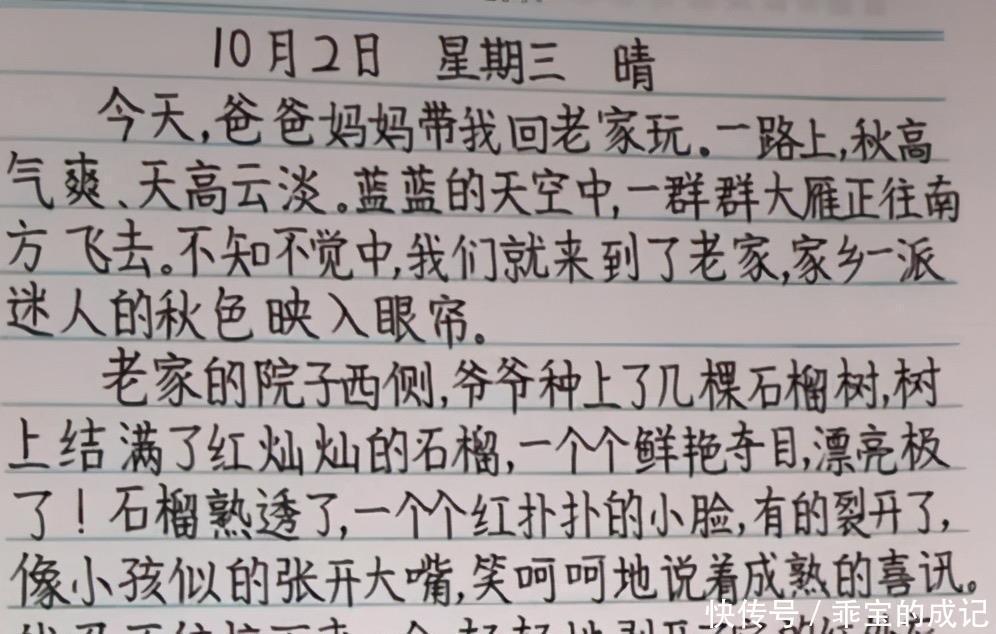 10月2日 星期三 晴
今天,爸爸妈妈带我回老家玩。一路上,秋高
气爽、天高云淡。蓝蓝的天空中,一群群大雁正往南
方飞去。不知不觉中,我们就来到了老家,家乡一派
迷人的秋色映入眼帘。
老家的院子西侧,爷爷种上了几棵石榴树,树
上结满了红灿灿的石榴,一个个鲜艳夺目,漂亮极
了!石榴熟透了,一个个红扑扑的小脸,有的裂开了,
像小孩似的张开大嘴,笑呵呵地说着成熟的喜讯。
快传号/乖宝的成记